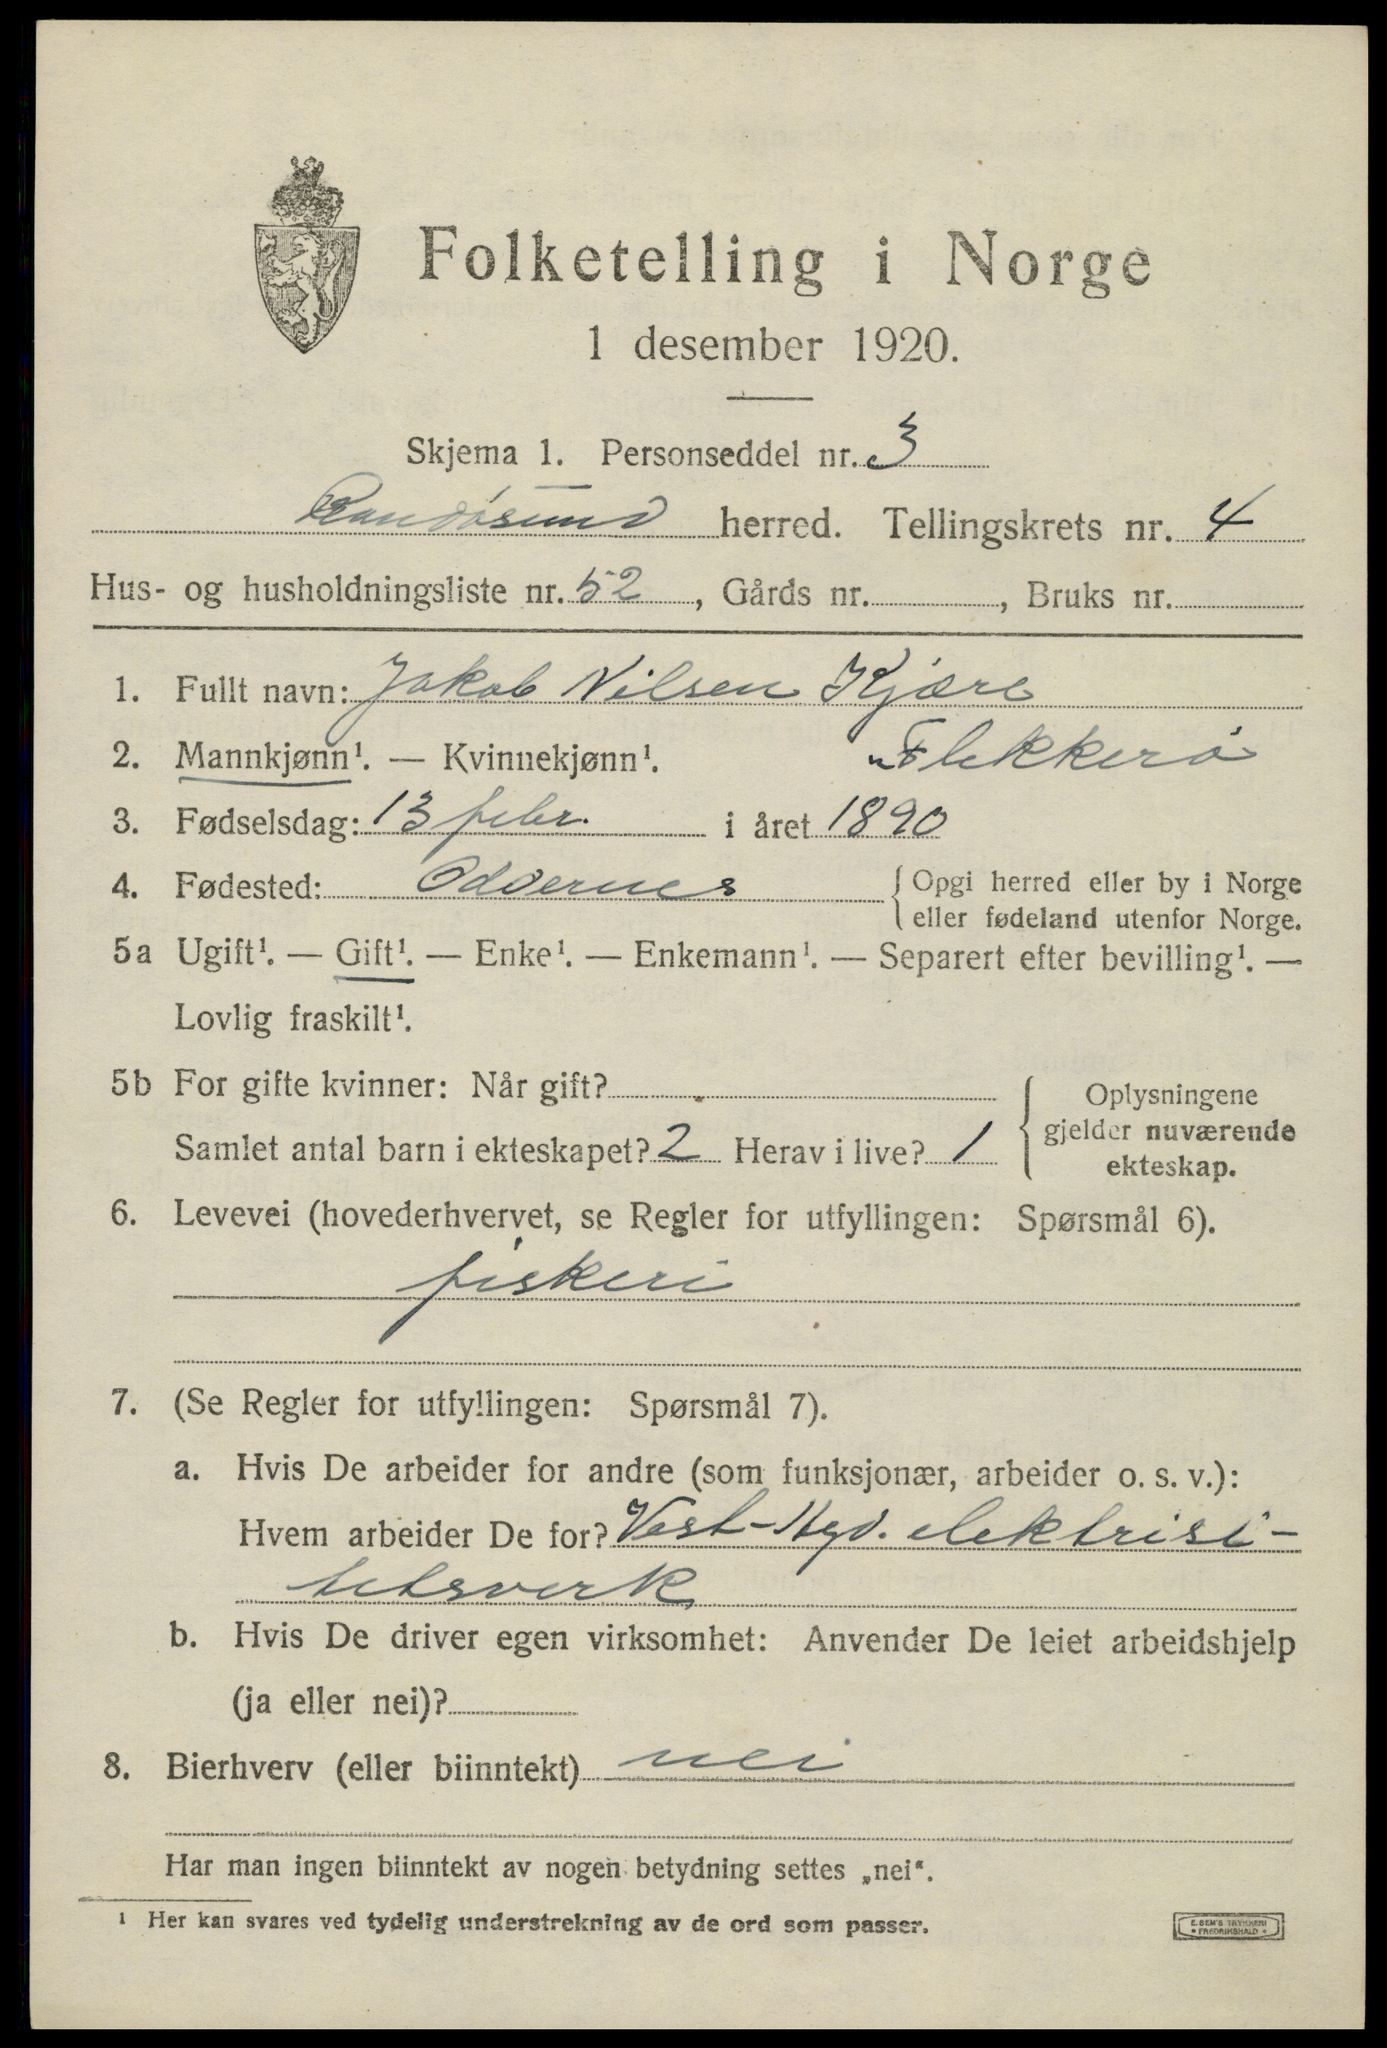 Folketelling i Norge
1 desember 1920.
Skjema 1. Personseddel nr. 3
Randøsund herred. Tellingskrets nr. 4
Hus- og husholdningsliste nr. 52, Gårds nr. , Bruks nr.
1. Fullt navn: Jakob Nilsen Kjære
2. Mannkjønn¹. — Kvinnekjønn¹. Flekkerø
3. Fødselsdag: 13 febr. i året 1890
4. Fødested: Oddernes { Opgi herred eller by i Norge
eller fødeland utenfor Norge.
5a Ugift¹. — Gift¹. — Enke¹. — Enkemann¹. — Separert efter bevilling¹. —
Lovlig fraskilt¹.
5b For gifte kvinner: Når gift? { Oplysningene
Samlet antal barn i ekteskapet? 2 Herav i live? 1 gjelder nuværende
ekteskap.
6. Levevei (hovederhvervet, se Regler for utfyllingen: Spørsmål 6).
fiskeri
7. (Se Regler for utfyllingen: Spørsmål 7).
a. Hvis De arbeider for andre (som funksjonær, arbeider o. s. v.):
Hvem arbeider De for? Vest-Agd. elektrisi-
tetsverk
b. Hvis De driver egen virksomhet: Anvender De leiet arbeidshjelp
(ja eller nei)?
8. Bierhverv (eller biinntekt) nei
Har man ingen biinntekt av nogen betydning settes „nei“.
¹ Her kan svares ved tydelig understrekning av de ord som passer.
E. SEM'S TRYKKERI
• FREDRIKSHALD •